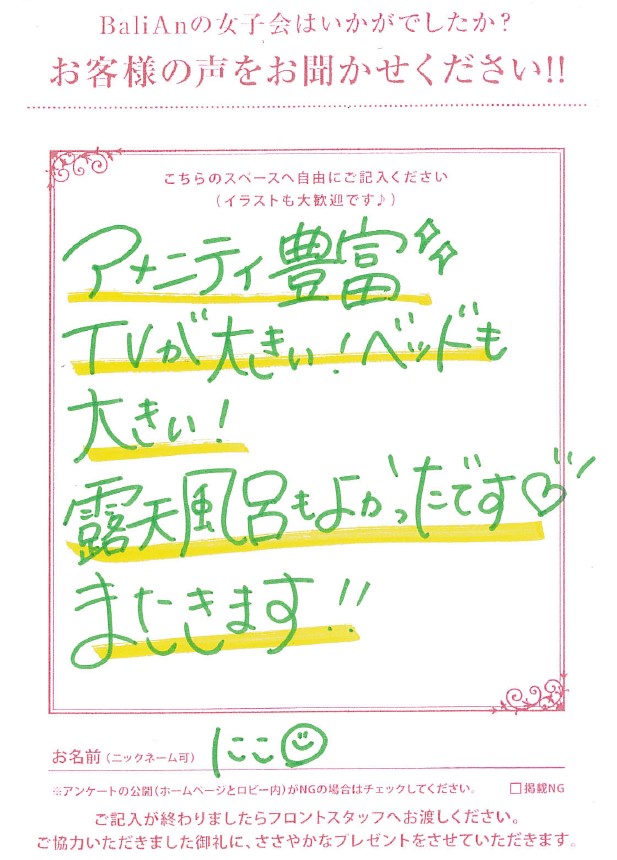 BaliAnの女子会はいかがでしたか?
お客様の声をお聞かせください!!
こちらのスペースへ自由にご記入ください
(イラストも大歓迎です♪)
アメニティ豊富
TVが大きい!ベッドも
大きい!
露天風呂もよかったです♡
またきます!!
お名前(ニックネーム可) にこ
※アンケートの公開(ホームページとロビー内)がNGの場合はチェックしてください。 □掲載NG
ご記入が終わりましたらフロントスタッフへお渡しください。
ご協力いただきました御礼に、ささやかなプレゼントをさせていただきます。